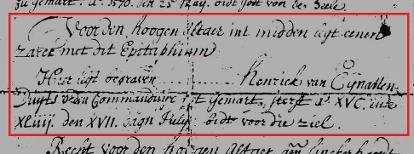 zu gemart. A° 1570. den 25 May. bidt Godt voor de Seele
Voor den hoogen Altaer int midden ligt eenen
zarck met dit Epitaphium
Hier ligt begraven ........ Henrick van Eijnatten
Duyts orden Commanduire tot Gemart, sterft A° XVC. ende
XLiiij. den XVII. dagh July bidt voor die ziel.
Recht voor den hoogen Altaer